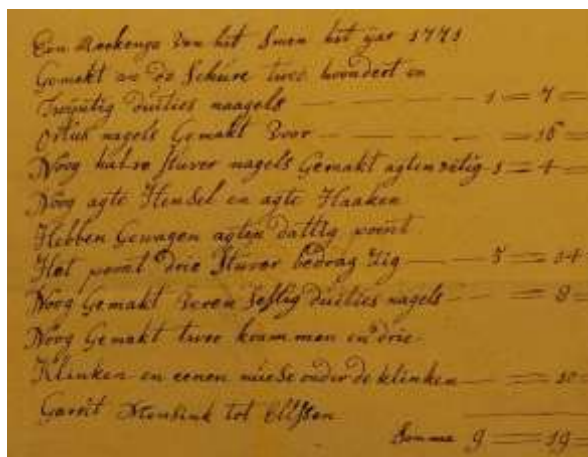 Een Reekenge van het Smen het yar 1771
Gemekt an de Schure twee hoondert en
Twyntig duities naagels — 1 = 7 —
nagels Gemakt voor — = 16 —
Noog halve stuver nagels Gemakt agten 1 = 4 —
Noog agte Hensel en agte Haaken
Hebben Gewagen agten dattig poont
Het poont drie Stuver bedrag zig — 5 = 14
Noog Gemakt seslig duities nagels — = 8 —
Noog Gemakt twee krammen en drie
Klinken en eenen onder de klinken — = 10 —
Garrit Mensink tot
Somme 9 = 19